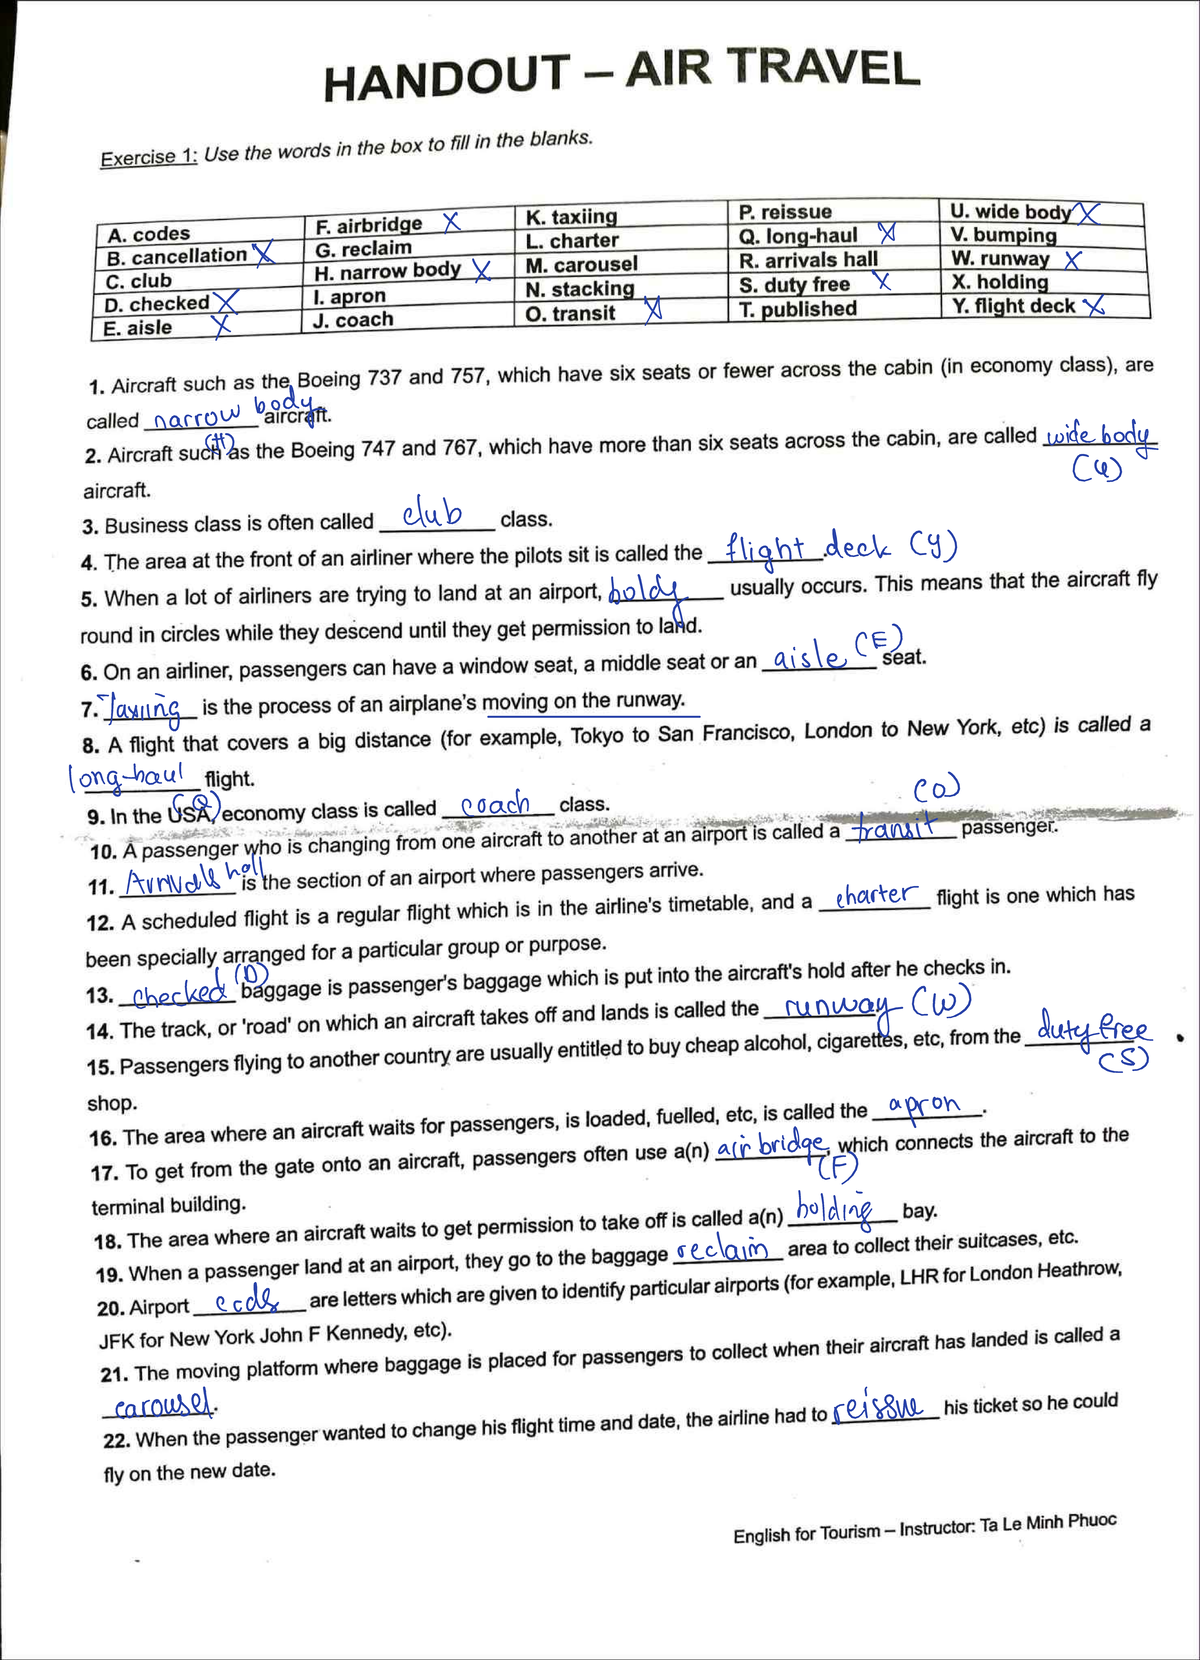 HANDOUT – AIR TRAVEL
Exercise 1: Use the words in the box to fill in the blanks.
A. codes F. airbridge X K. taxiing P. reissue U. wide body X
B. cancellation X G. reclaim L. charter Q. long-haul X V. bumping
C. club H. narrow body X M. carousel R. arrivals hall W. runway X
D. checked X I. apron N. stacking S. duty free X X. holding
E. aisle X J. coach O. transit X T. published Y. flight deck X
1. Aircraft such as the Boeing 737 and 757, which have six seats or fewer across the cabin (in economy class), are
called narrow body aircraft.
(H)
2. Aircraft such as the Boeing 747 and 767, which have more than six seats across the cabin, are called wide body
(U)
aircraft.
3. Business class is often called club class.
4. The area at the front of an airliner where the pilots sit is called the flight deck (Y).
5. When a lot of airliners are trying to land at an airport, usually occurs. This means that the aircraft fly
round in circles while they descend until they get permission to land.
6. On an airliner, passengers can have a window seat, a middle seat or an aisle (E) seat.
7. Taxiing is the process of an airplane's moving on the runway.
8. A flight that covers a big distance (for example, Tokyo to San Francisco, London to New York, etc) is called a
long-haul flight.
(Q)
9. In the USA, economy class is called coach class.
(O)
10. A passenger who is changing from one aircraft to another at an airport is called a transit passenger.
11. Arrivals hall is the section of an airport where passengers arrive.
12. A scheduled flight is a regular flight which is in the airline's timetable, and a charter flight is one which has
been specially arranged for a particular group or purpose.
13. checked (D) baggage is passenger's baggage which is put into the aircraft's hold after he checks in.
14. The track, or 'road' on which an aircraft takes off and lands is called the runway (W)
15. Passengers flying to another country are usually entitled to buy cheap alcohol, cigarettes, etc, from the duty free
(S)
shop.
16. The area where an aircraft waits for passengers, is loaded, fuelled, etc, is called the apron.
17. To get from the gate onto an aircraft, passengers often use a(n) air bridge, which connects the aircraft to the
(F)
terminal building.
18. The area where an aircraft waits to get permission to take off is called a(n) holding bay.
19. When a passenger land at an airport, they go to the baggage reclaim area to collect their suitcases, etc.
20. Airport codes are letters which are given to identify particular airports (for example, LHR for London Heathrow,
JFK for New York John F Kennedy, etc).
21. The moving platform where baggage is placed for passengers to collect when their aircraft has landed is called a
carousel.
22. When the passenger wanted to change his flight time and date, the airline had to reissue his ticket so he could
fly on the new date.
English for Tourism – Instructor: Ta Le Minh Phuoc